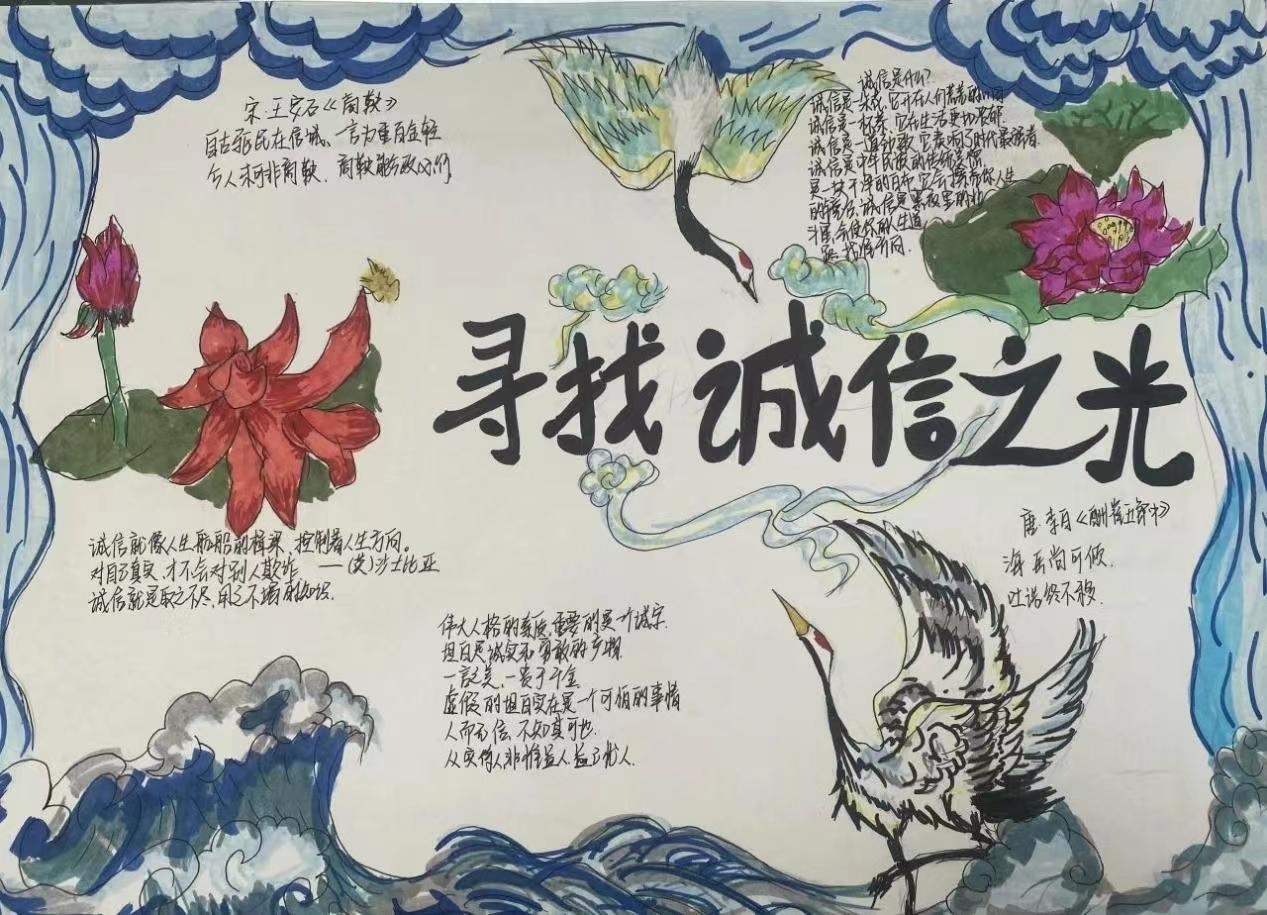 宋·王安石《商鞅》
自古驱民在信诚、一言为重百金轻
今人未可非商鞅、商鞅能令政必行
诚信是什么?
诚信是一朵花,它开在人们
诚信是一杯茶,它在生活更加浓郁
诚信是一首,它奏响了时代最强音
诚信是中华民族的传统美德
是一块干净的白布,它会擦亮你人生
的,诚信是黑夜里的北
斗星,会使你的人生道
路指住方向.
寻找 诚信之光
唐·李白《酬崔五郎中》
海岳尚可倾.
吐诺终不移.
诚信就像人生航船的楫桨、控制着人生方向。
对自己真实,才不会对别人欺诈 ——(英)莎士比亚
诚信就是取之不尽,用之不竭的知识.
伟大人格的素质,重要的是一个诚字.
坦白是诚实和勇敢的产物.
一言之美,贵于千金
虚假的坦白实在是一个可怕的事情
人而无信,不知其可也.
以实待人,非惟益人,益己尤大.